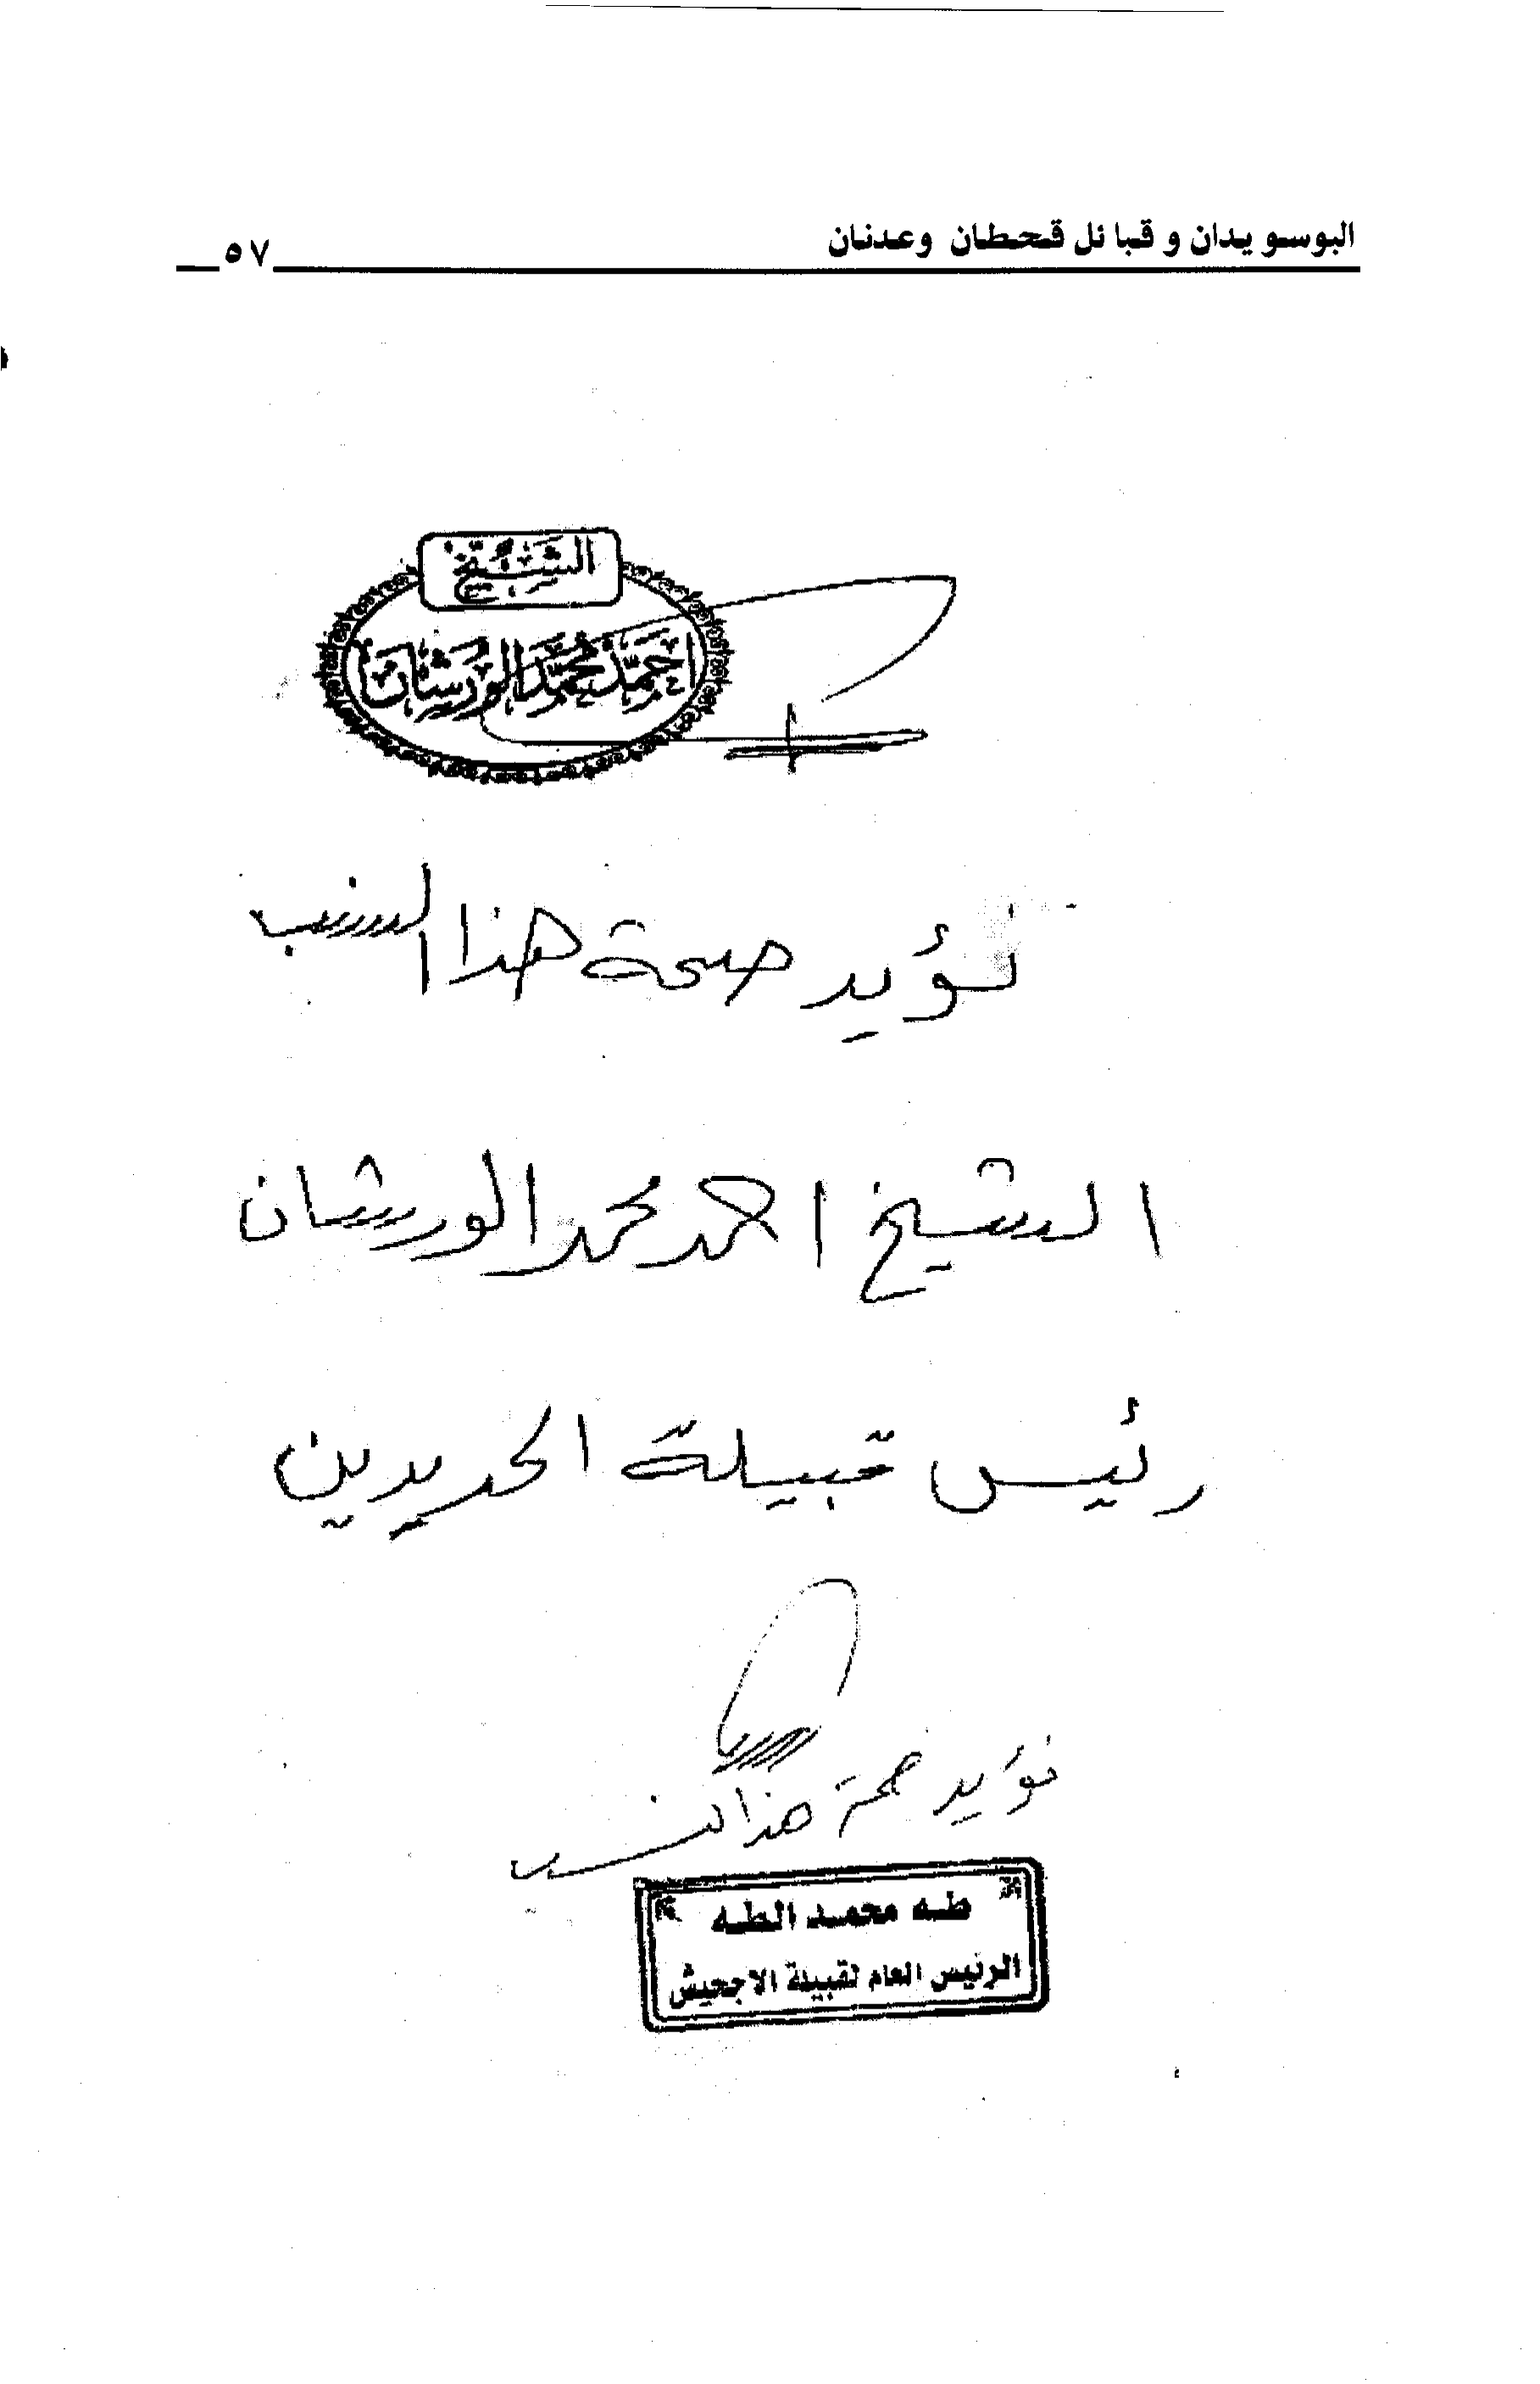 البوسويدان وقبائل قحطان وعدنان ٥٧
الشيخ
احمد محمد الورشان
نؤيد صحة هذا النسب
الشيخ احمد محمد الورشان
رئيس قبيلة الحديدين
نؤيد صحة هذا النسب
طه محمد الطه
الرئيس العام لقبيلة الاجحيش